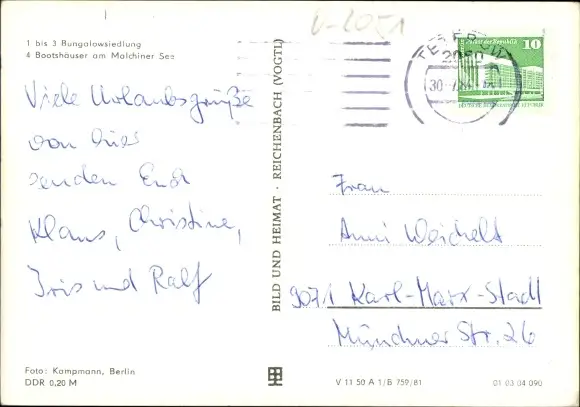 1 bis 3 Bungalowsiedlung
4 Bootshäuser am Malchiner See
Viele Urlaubsgrüße
von hier
senden Euch
Klaus, Christine,
Iris und Ralf
Foto: Kampmann, Berlin
DDR 0,20 M
BILD UND HEIMAT · REICHENBACH (VOGTL)
TETEROW
30.
10
Frau
Anni Weichelt
9071 Karl-Marx-Stadt
Münchner Str. 26
V 11 50 A 1/B 759/81
01 03 04 090